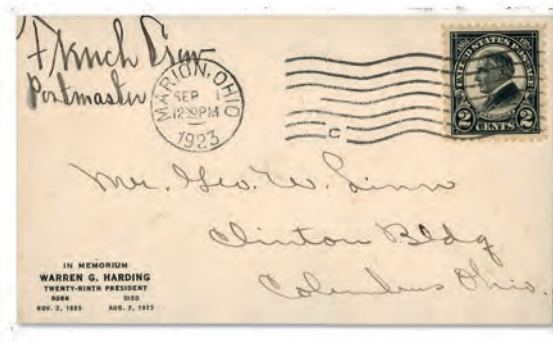 French Crow
Postmaster
MARION, OHIO
SEP 1
12 30PM
1923
C
UNITED STATES POSTAGE
2 CENTS 2
Mr. Geo. W. Linn
Clinton Bldg
Columbus Ohio.
IN MEMORIUM
WARREN G. HARDING
TWENTY-NINTH PRESIDENT
BORN DIED
NOV. 2, 1865 AUG. 2, 1923